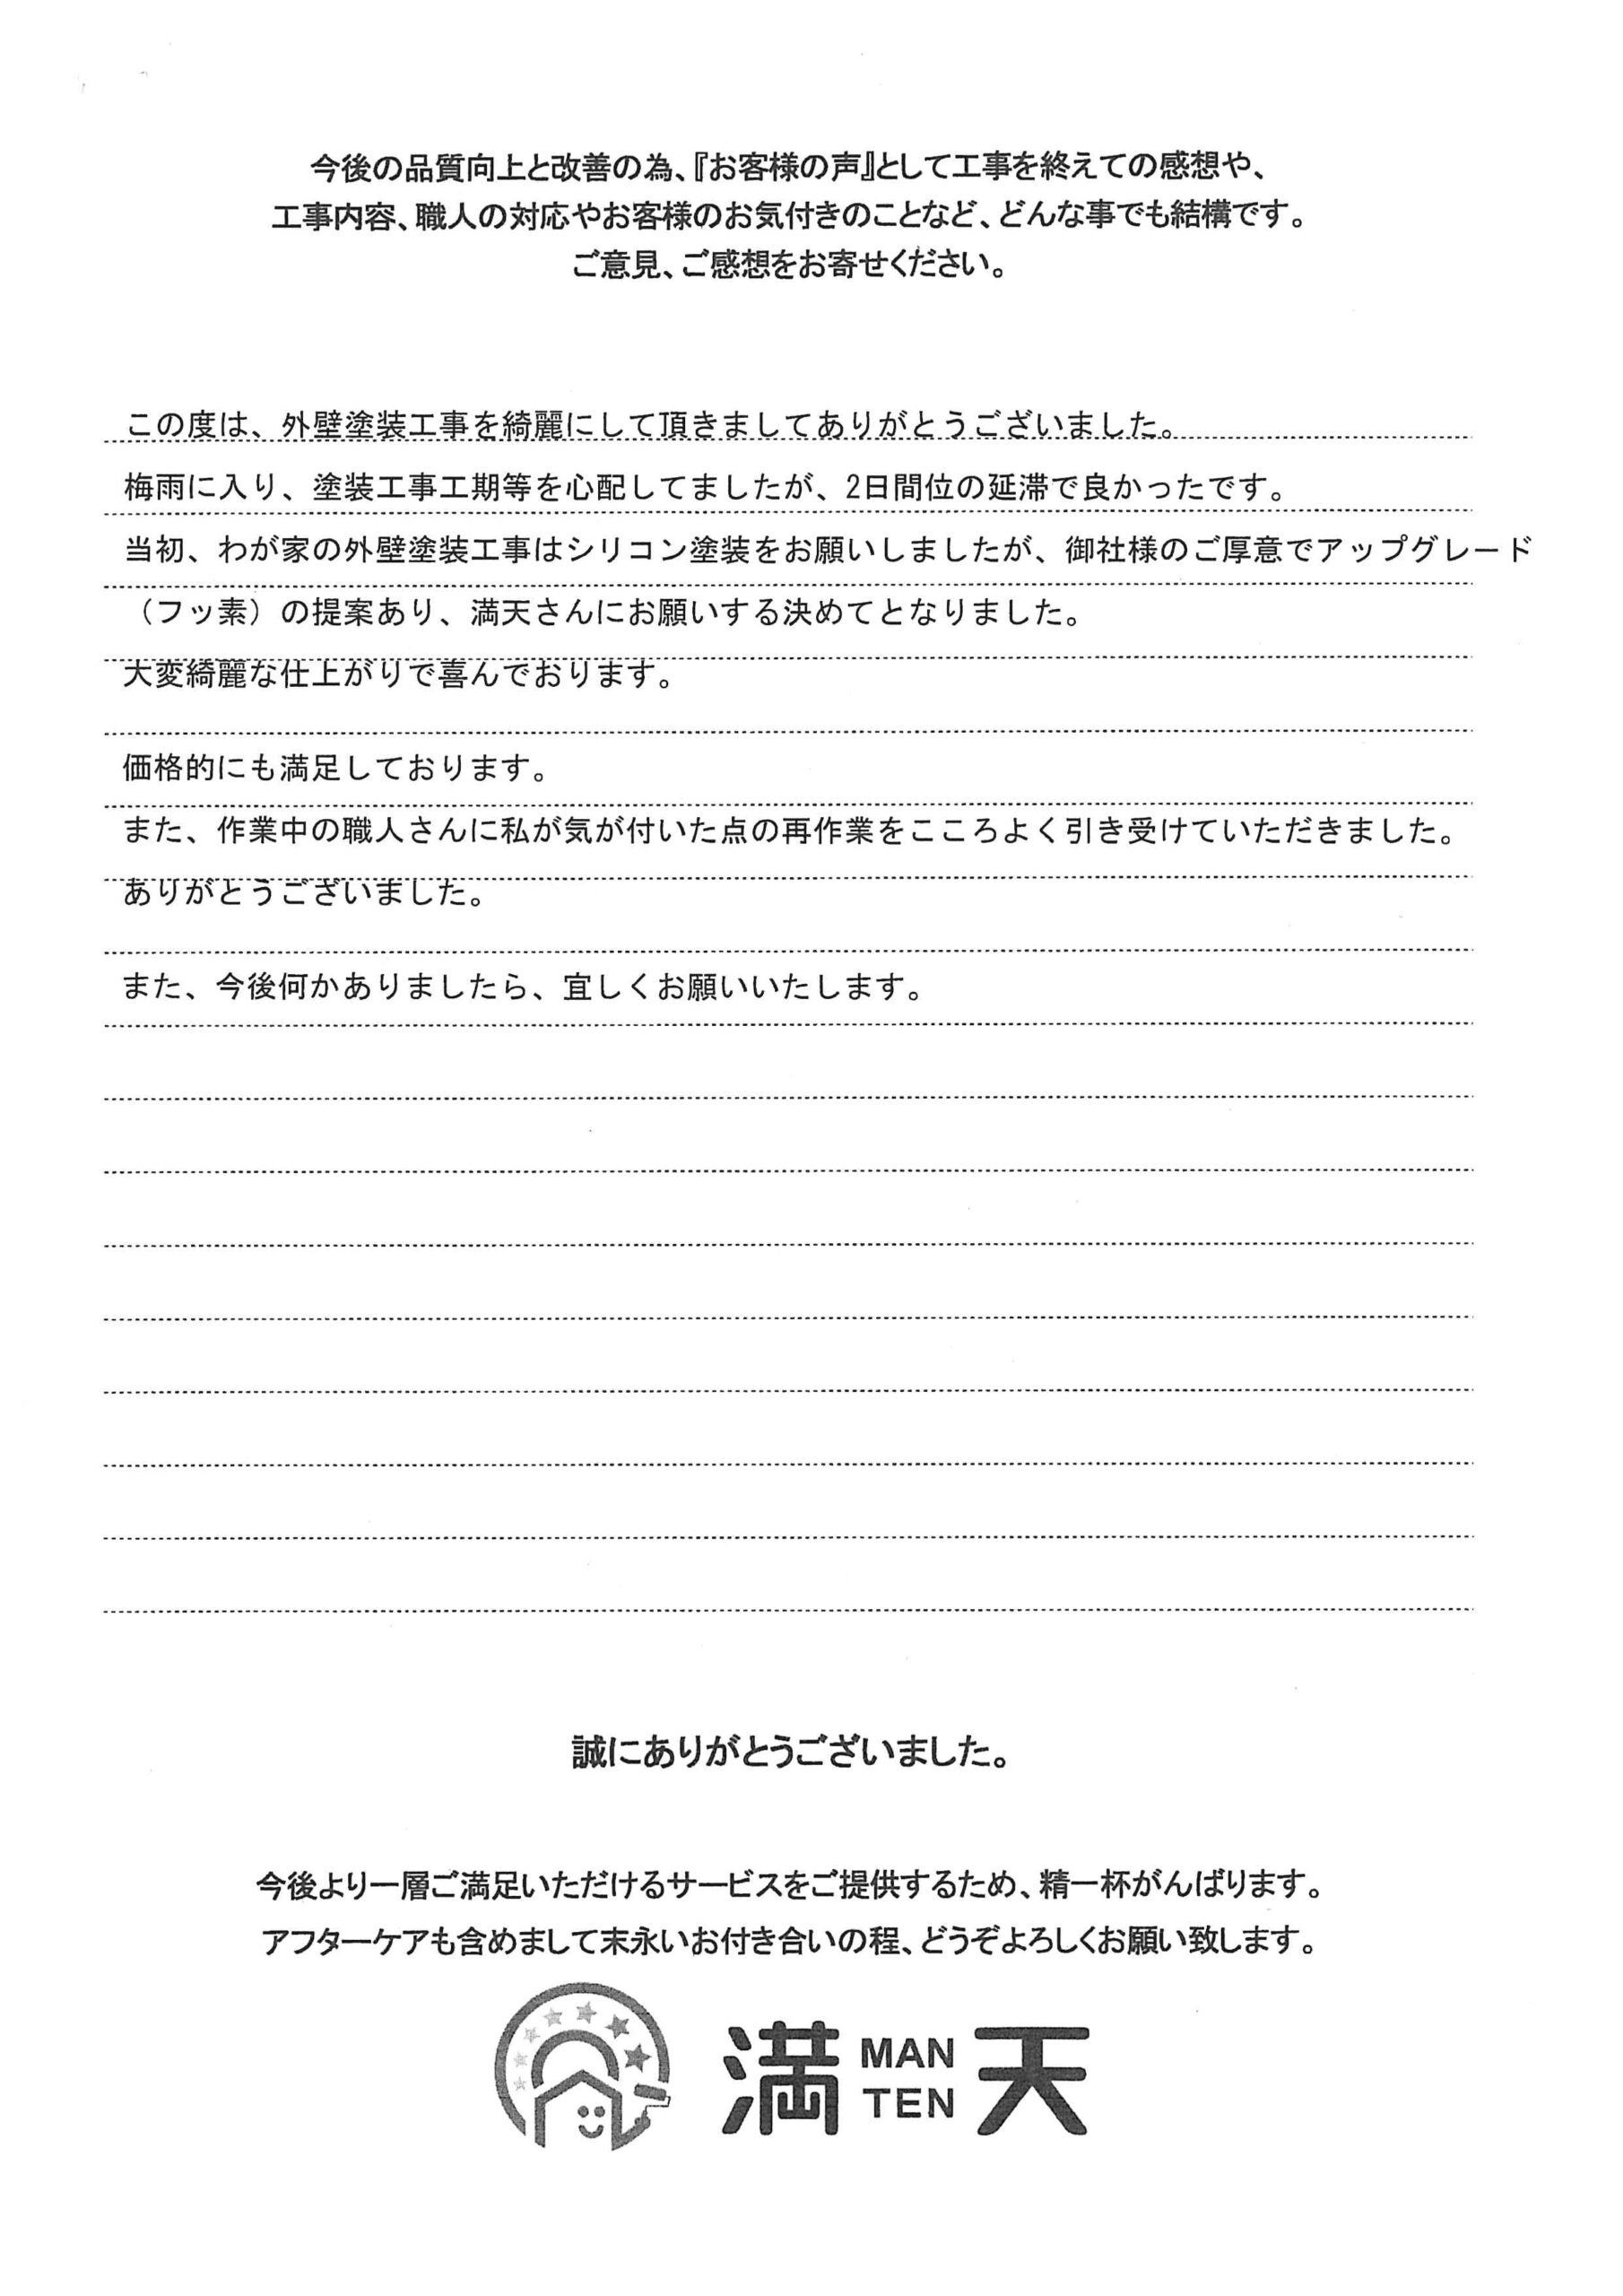 今後の品質向上と改善の為、『お客様の声』として工事を終えての感想や、
工事内容、職人の対応やお客様のお気付きのことなど、どんな事でも結構です。
ご意見、ご感想をお寄せください。
この度は、外壁塗装工事を綺麗にして頂きましてありがとうございました。
梅雨に入り、塗装工事工期等を心配してましたが、2日間位の延滞で良かったです。
当初、わが家の外壁塗装工事はシリコン塗装をお願いしましたが、御社様のご厚意でアップグレード
（フッ素）の提案あり、満天さんにお願いする決めてとなりました。
大変綺麗な仕上がりで喜んでおります。
価格的にも満足しております。
また、作業中の職人さんに私が気が付いた点の再作業をこころよく引き受けていただきました。
ありがとうございました。
また、今後何かありましたら、宜しくお願いいたします。
誠にありがとうございました。
今後より一層ご満足いただけるサービスをご提供するため、精一杯がんばります。
アフターケアも含めまして末永いお付き合いの程、どうぞよろしくお願い致します。
満 MAN TEN 天